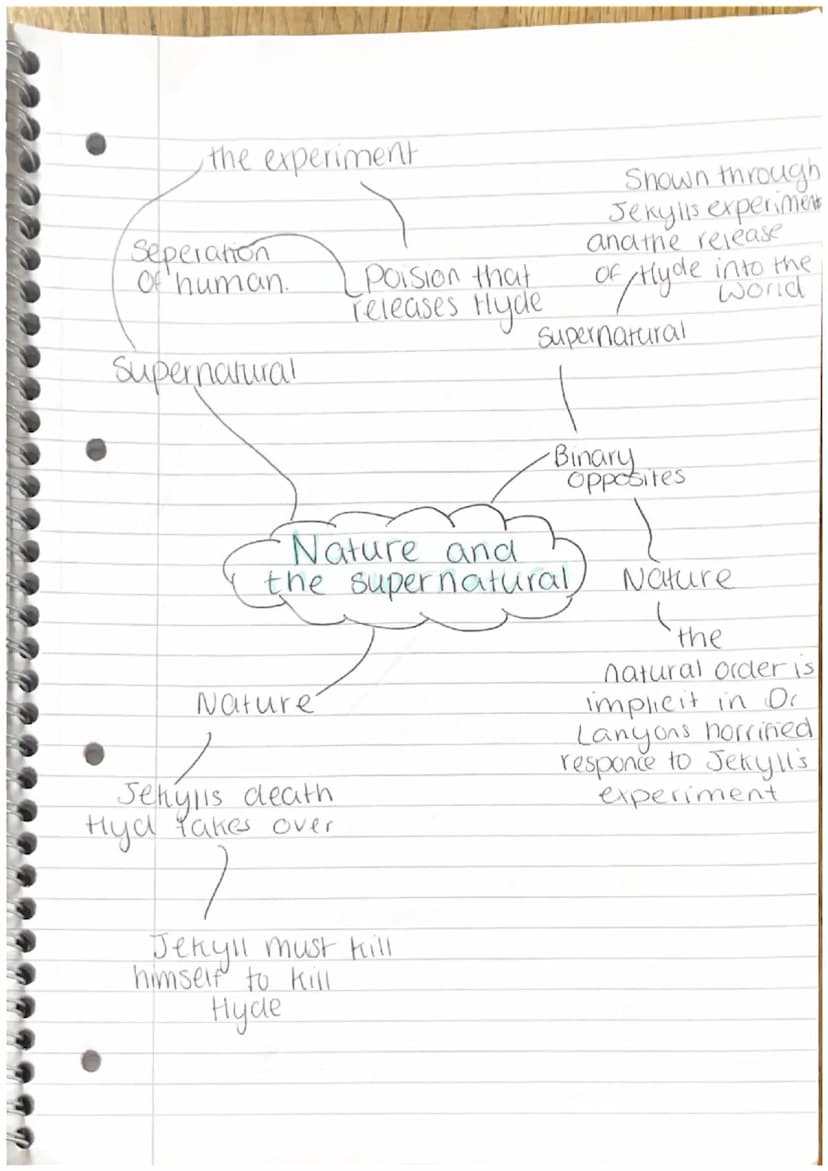 the experiment
Seperation
of human.
Poision that
releases Hyde
Supernatural
Shown through
Jekylls experiment
and the release
of Hyde into the
world
Supernatural
Binary
Opposites
Nature and
the supernatural
Nature
the
natural order is
implicit in Dr
Lanyons horrified
responce to Jekyll's
experiment
Nature
Jekylls death
Hyd takes over
Jekyll must kill
himself to kill
Hyde